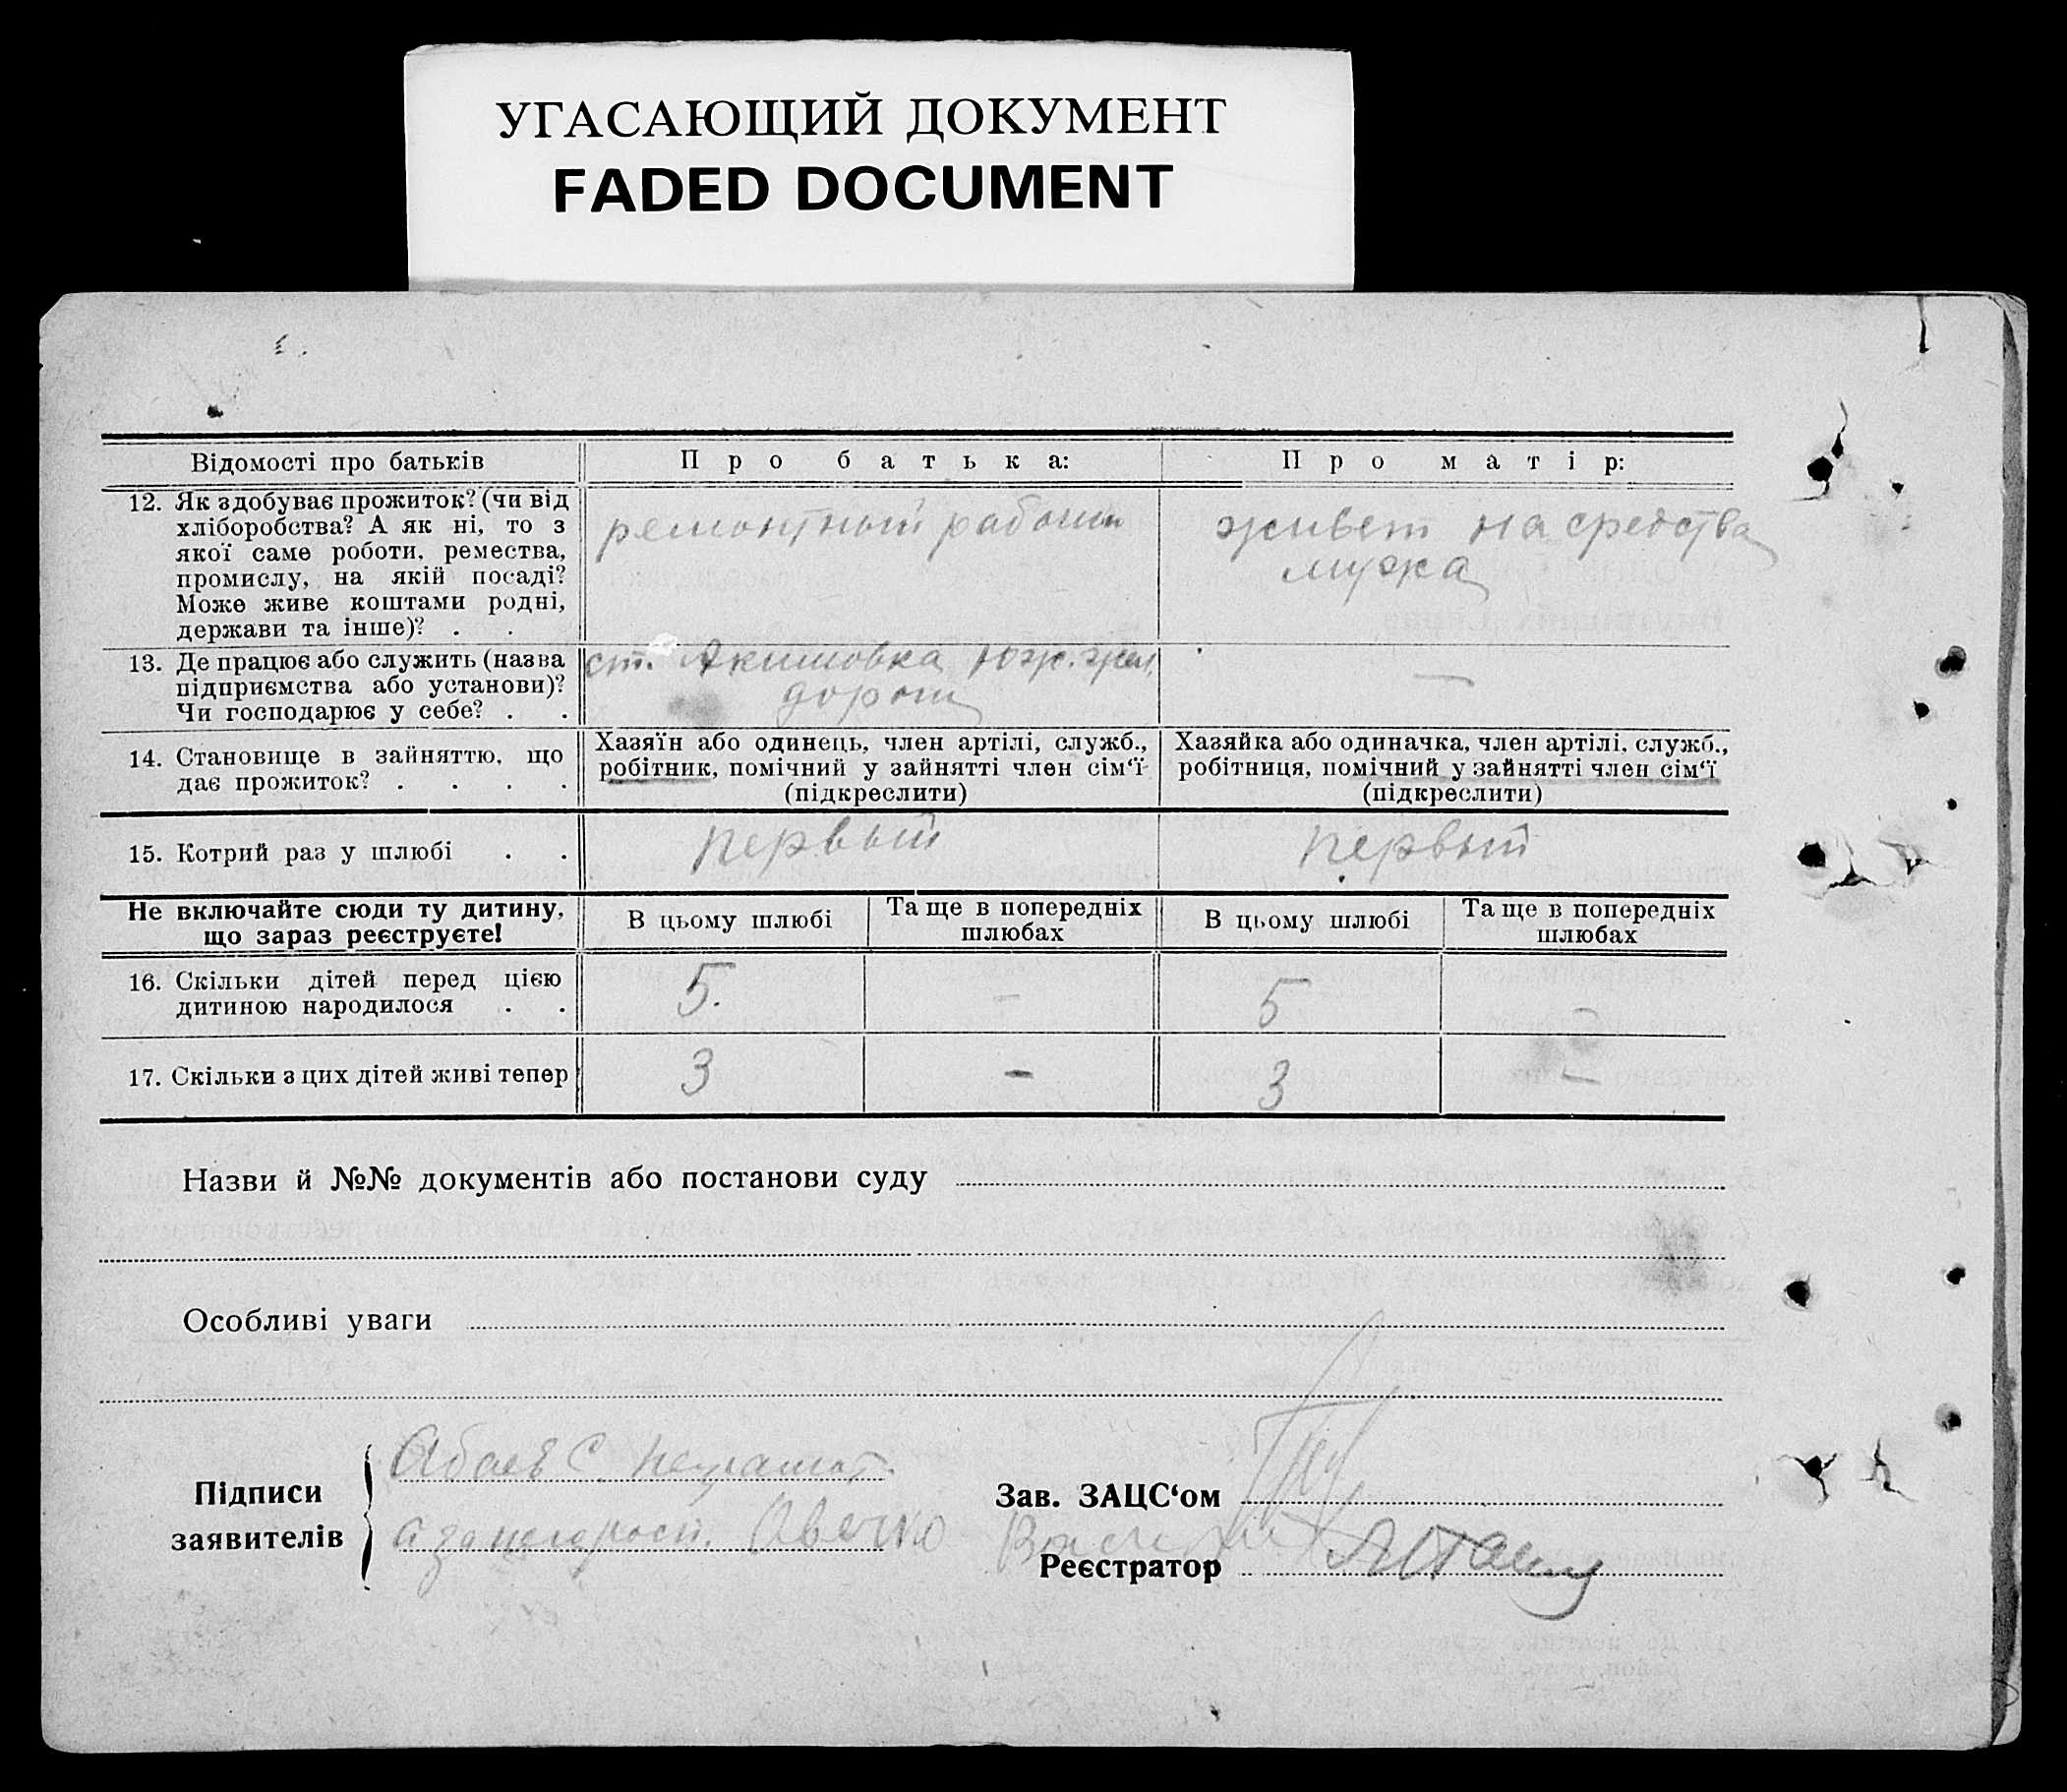 УГАСАЮЩИЙ ДОКУМЕНТ
FADED DOCUMENT
Відомості про батьків
Про батька:
Про матір:
12. Як здобуває прожиток? (чи від
хліборобства? А як ні, то з
якої саме роботи, ремества,
промислу, на якій посаді?
Може живе коштами родні,
держави та інше)? . .
ремонтный рабочий
живет на средства
мужа
13. Де працює або служить (назва
підприємства або установи)?
Чи господарює у себе? . .
ст. Акимовка Юж. жел.
дороги
—
14. Становище в зайняттю, що
дає прожиток? . . . .
Хазяїн або одинець, член артілі, служб.,
робітник, помічний у зайнятті член сім‘ї
(підкреслити)
Хазяйка або одиначка, член артілі, служб.,
робітниця, помічний у зайнятті член сім‘ї
(підкреслити)
15. Котрий раз у шлюбі . .
первый
первый
Не включайте сюди ту дитину,
що зараз реєструєте!
В цьому шлюбі
Та ще в попередніх
шлюбах
В цьому шлюбі
Та ще в попередніх
шлюбах
16. Скільки дітей перед цією
дитиною народилося . .
5.
–
5
–
17. Скільки з цих дітей живі тепер
3
–
3
–
Назви й №№ документів або постанови суду
Особливі уваги
Підписи
заявителів
Абаев С. неграмот.
а за неграмот. Овечко
Зав. ЗАЦС‘ом
Реєстратор